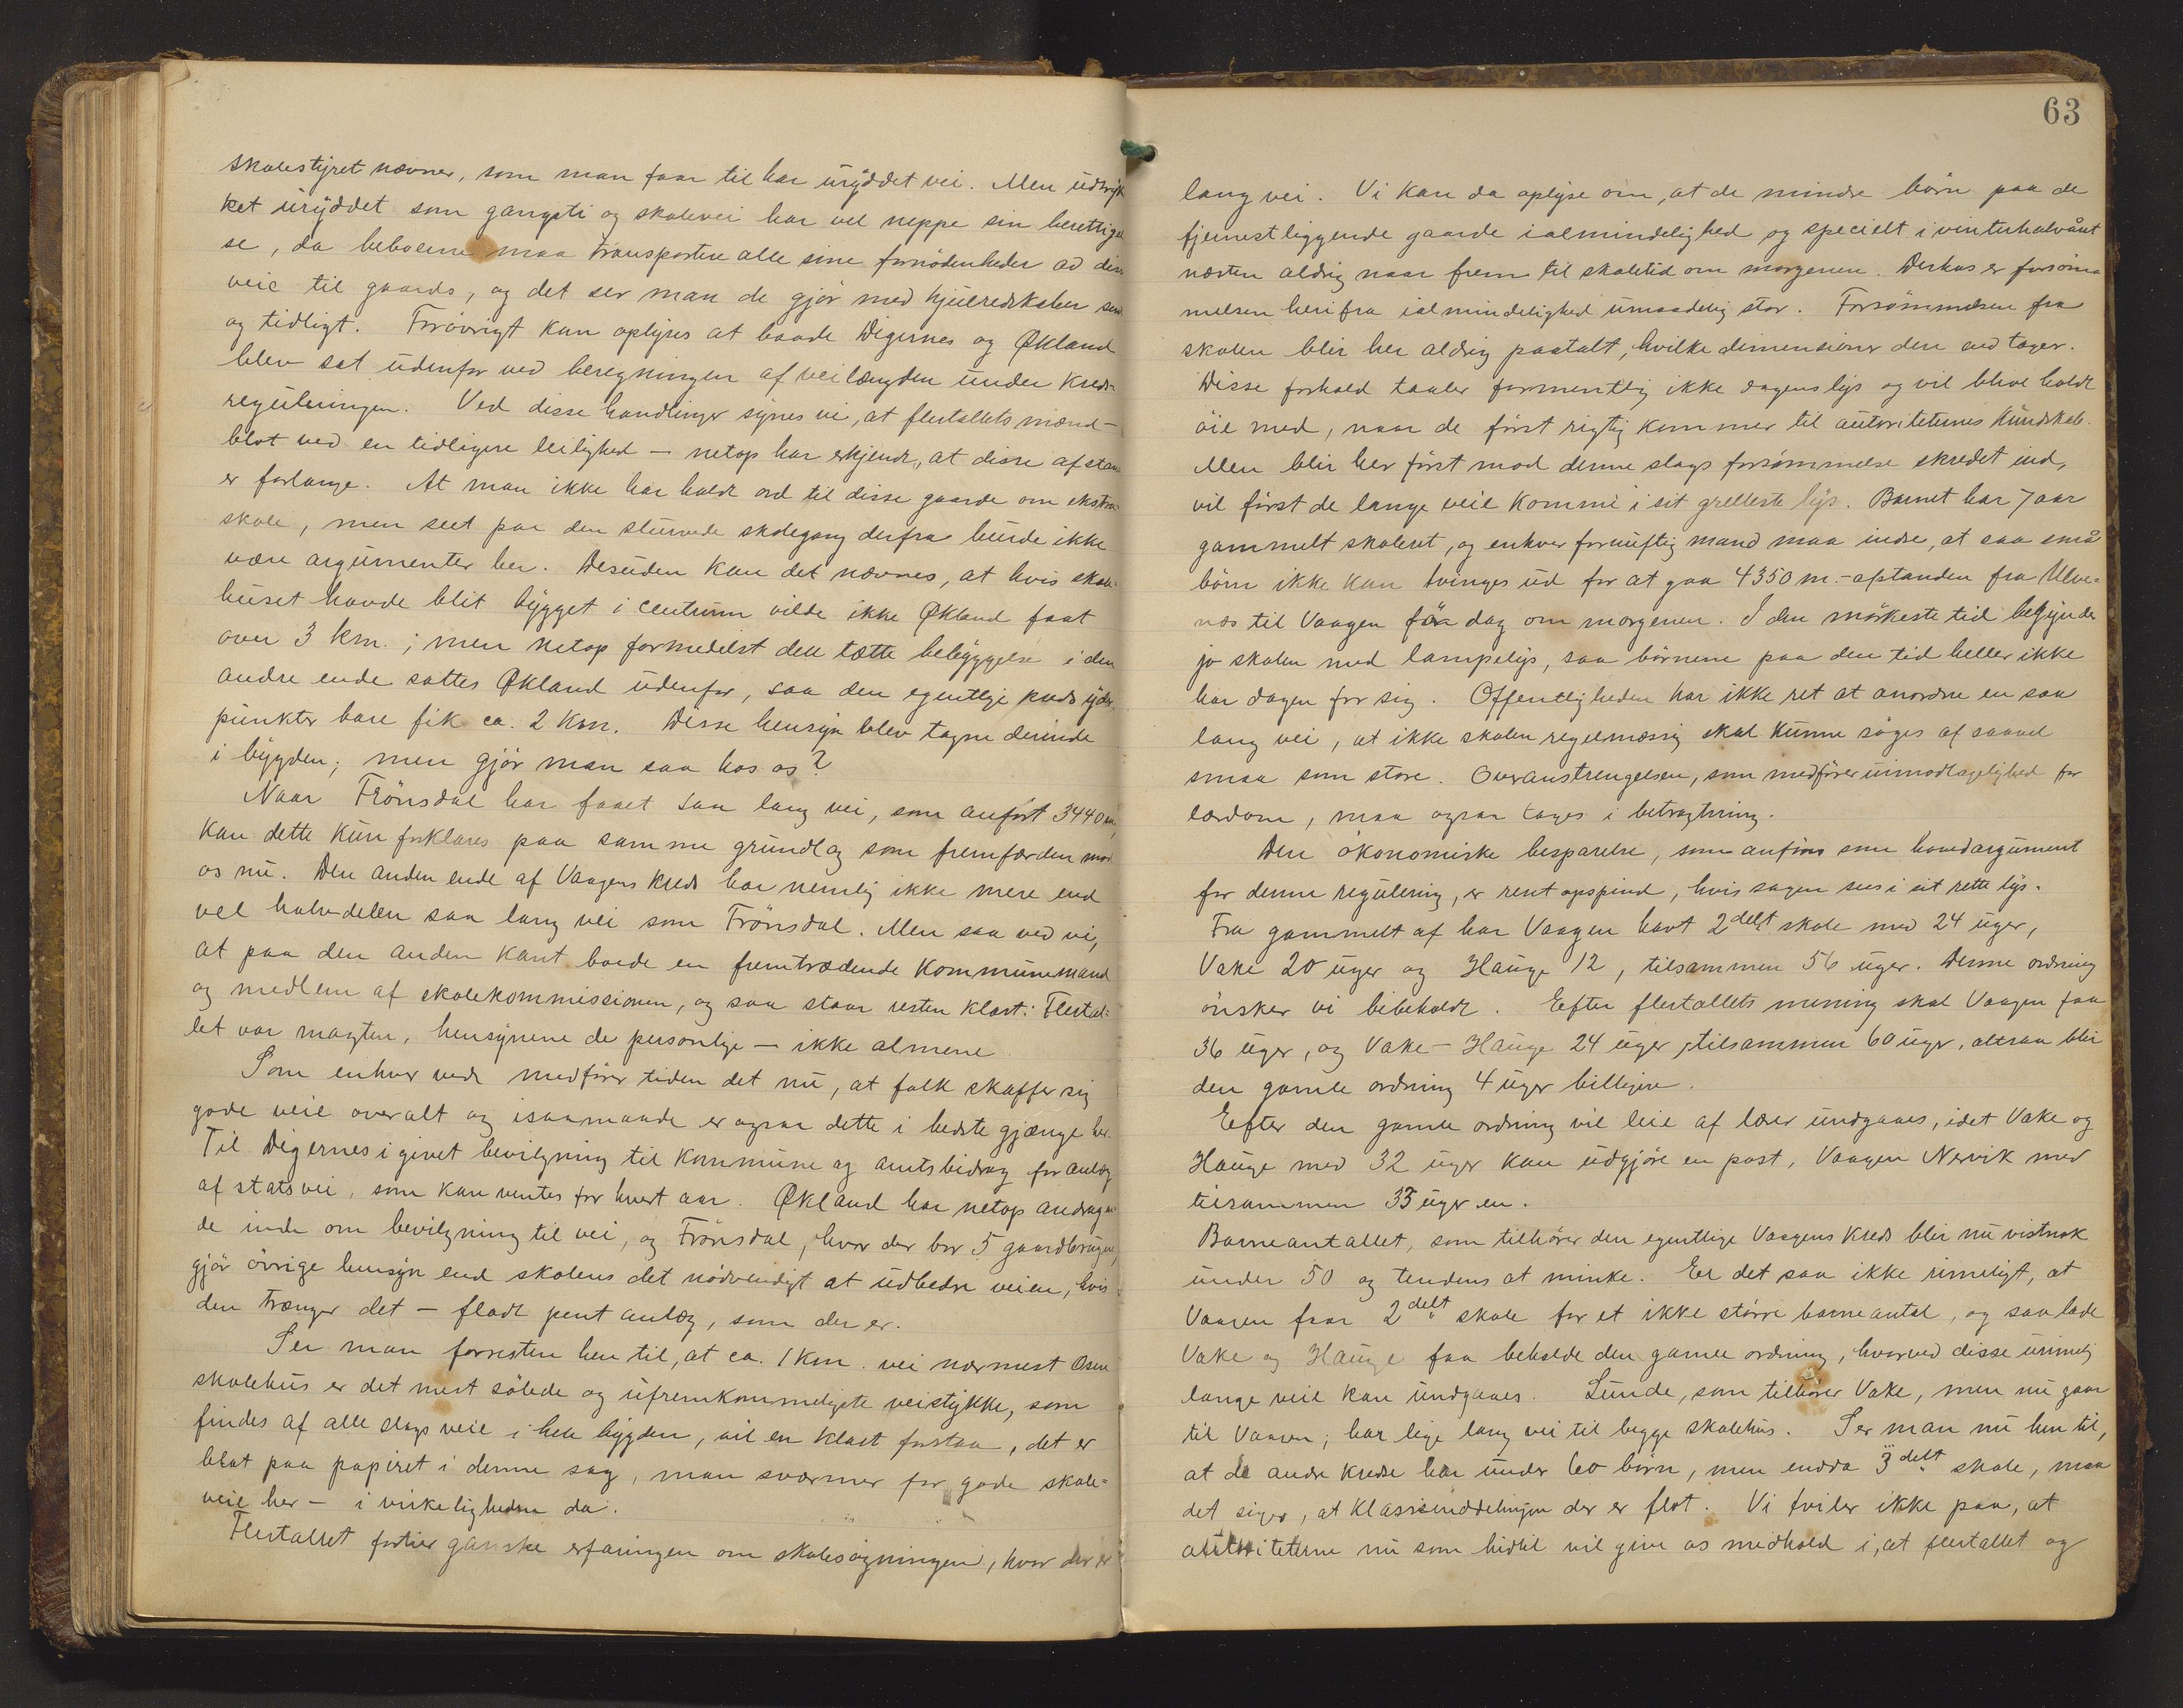 skolestyret nævner, som man faar til har uryddet vei. Men udtryk
ket uryddet som gangsti og skolevei har vel neppe sin berettigel
se, da beboerne maa transportere alle sine fornödenheder ad disse
veie til gaards, og det ser man de gjör med hjulredskaber sent
og tidligt. Forövrigt kan oplyses at baade Digernes og Økland
blev sat udenfor ved beregningen af veilængden under kreds-
reguleringen. Ved disse handlinger synes vi, at flertallets mænd –
blot ved en tidligere leilighed – netop har erkjendt, at disse afstan
er forlange. At man ikke har holdt ord til disse gaarde om ekstra-
skole, men seet paa den sturvede skolegang derfra burde ikke
være argumenter her. Desuden kan det nævnes, at hvis skole-
huset havde blit bygget i centrum vilde ikke Økland faat
over 3 km.; men netop formedelst den tætte bebyggelse i den
andre ende sattes Økland udenfor, saa den egentlige kreds yder
punkter bare fik ca. 2 km. Disse hensyn blev tagne derinde
i bygden; men gjör man saa hos os?
Naar Frönsdal har faaet saa lang vei, som anfört 3440 m,
kan dette kun forklares paa samme grundlag som fremfærden mod
os nu. Den anden ende af Vaagens kreds har nemlig ikke mere end
vel halvdelen saa lang vei som Frönsdal. Men saa ved vi,
at paa den anden kant boede en fremtrædende kommunemand
og medlem af skolekommissionen, og saa staar resten klart: Flertal-
let var magten, hensynene de personlige – ikke almene.
Som enhver vedt medförer tiden det nu, at folk skaffer sig
gode veie overalt og isaamaade er ogsaa dette i bedste gjænge her.
Til Digernes i givet bevilgning til kommune og amtsbidrag for anlæg
af statsvei, som kan ventes for hvert aar. Økland har netop andragen
de inde om bevilgning til vei, og Frönsdal, hvor der bor 5 gaardbrugere,
gjör övrige hensyn end skolens det nödvendigt at udbedre veien, hvis
den trænger det – fladt pent anlæg, som der er.
Ser man forresten hen til, at ca. 1 km. vei nærmest Osen
skolehus er det mest sölede og ufremkommeligste veistykke, som
findes af alle slags veie i hele bygden, vil en klart forstaa, det er
blot paa papiret i denne sag, man sværmer for gode skole-
veie her – i virkeligheden da.
Flertallet fortier ganske erfaringen om skolesögningen, hvor der er
63
lang vei. Vi kan da oplyse om, at de mindre börn paa de
fjernestliggende gaarde ialmindelighed og specielt i vinterhalvåret
næsten aldrig naar frem til skoletid om morgenen. Derhos er forsöm
melsen herifra ialmindelighed umaadelig stor. Forsömmelsen fra
skolen blir her aldrig paatalt, hvilke dimensioner den end tager.
Disse forhold taaler formentlig ikke dagens lys og vil blive holdt
öie med, naar de först rigtig kommer til autoriteternes kundskab.
Men blir her först mod denne slags forsömmelse skredet ind,
vil först de lange veie komme i sit grelleste lys. Barnet har 7 aar
gammelt skoleret, og enhver fornuftig mand maa indse, at saa små
börn ikke kan tvinges ud for at gaa 4350 m. – afstanden fra Ulve-
næs til Vaagen för dag om morgenen. I den mörkeste tid begynder
jo skolen med lampelys, saa börnene paa den tid heller ikke
har dagen for sig. Offentligheden har ikke ret at anordne en saa
lang vei, at ikke skolen regelmæssig skal kunne söges af saavel
smaa som store. Overanstrengelsen, som medförer uimodtagelighed for
lærdom, maa ogsaa tages i betragtning.
Den ökonomiske besparelse, som anföres som hovedargument
for denne regulering, er rent opspind, hvis sagen sees i sit rette lys.
Fra gammelt af har Vaagen havt 2delt skole med 24 uger,
Vake 20 uger og Hauge 12, tilsammen 56 uger. Denne ordning
önsker vi bibeholdt. Eefter flertallets mening skal Vaagen faa
36 uger, og Vake – Hauge 24 uger, tilsammen 60 uger, altsaa blir
den gamle ordning 4 uger billigere.
Eefter den gamle ordning vil leie af lærer undgaaes, idet Vake og
Hauge med 32 uger kan udgjöre en post, Vaagen Nervik med
tilsammen 35 uger en.
Barneantallet, som tilhörer den egentlige Vaagens kreds blir nu vistnok
under 50 og tendens at minke. Eer det saa ikke rimeligt, at
Vaagen faar 2delt skole for et ikke större barneantal, og saa lade
Vake og Hauge faa beholde den gamle ordning, hvorved disse urimelig
lange veie kan undgaaes. Lunde, som tilhörer Vake, men nu gaar
til Vaagen, har lige lang vei til begge skolehus. Ser man nu hen til,
at de andre kredse har under 60 börn, men endda 3delt skole, maa
det siges, at klasseinddelingen der er flot. Vi tviler ikke paa, at
autoriteterne nu som hidtil vil give os medhold i, at flertallet og